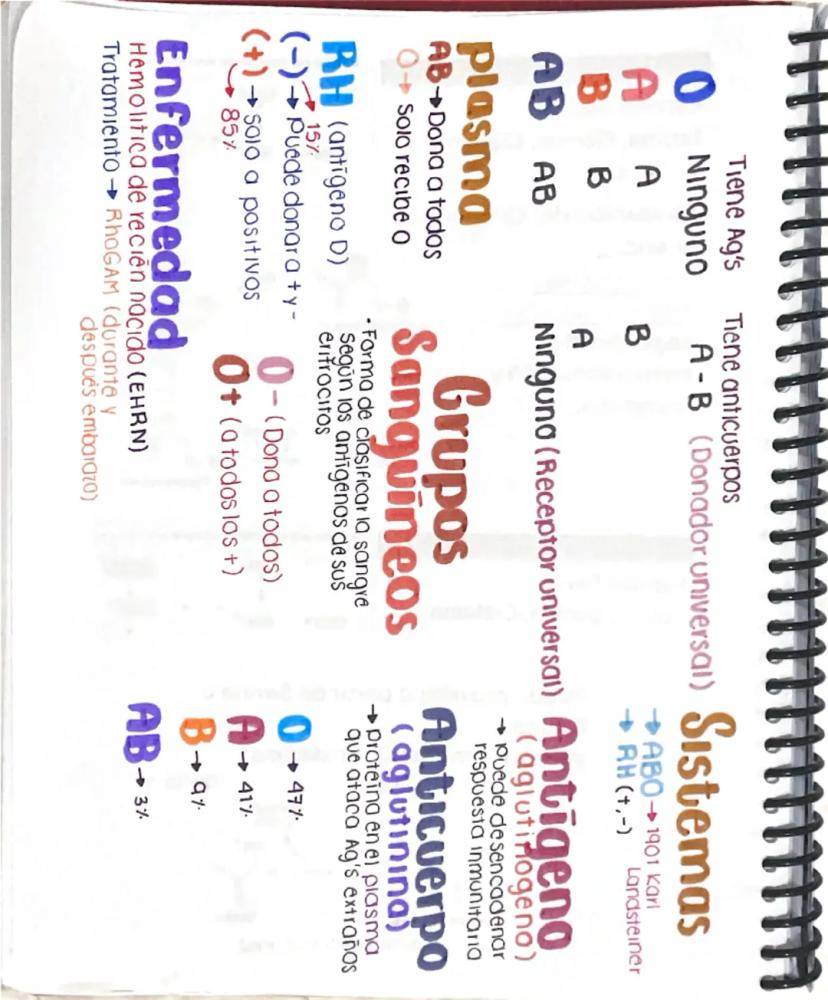 Tiene Ag's   Tiene anticuerpos
O   Ninguno   A - B (Donador universal)
A   A   B
B   B   A
AB   AB   Ninguna (Receptor universal)
Sistemas
→ ABO → 1901 Karl
Landsteiner
→ RH (+,-)
Plasma
AB → Dona a todos
O → Solo recibe O
Grupos
Sanguíneos
· Forma de clasificar la sangre
según los antígenos de sus
eritrocitos
Antígeno
(aglutinogeno)
→ puede desencadenar
respuesta inmunitaria
RH (antígeno D)
15%
(-) → puede donar a + y -
(+) → solo a positivos
85%
O - (Dona a todos)
O + (a todos los +)
Anticuerpo
(aglutinina)
→ proteína en el plasma
que ataca Ag's extraños
Enfermedad
Hemolítica de recién nacido (EHRN)
Tratamiento → RhoGAM (durante y
después embarazo)
O → 47%
A → 41%
B → 9%
AB → 3%